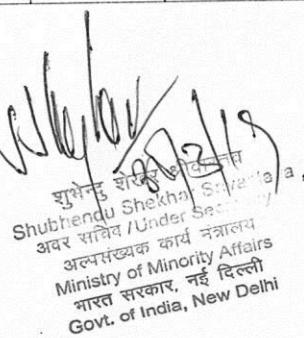 शुभेन्दु शेखर श्रीवास्तव
Shubhendu Shekhar
अवर सचिव / Under Secretary
अल्पसंख्यक कार्य मंत्रालय
Ministry of Minority Affairs
भारत सरकार, नई दिल्ली
Govt. of India, New Delhi